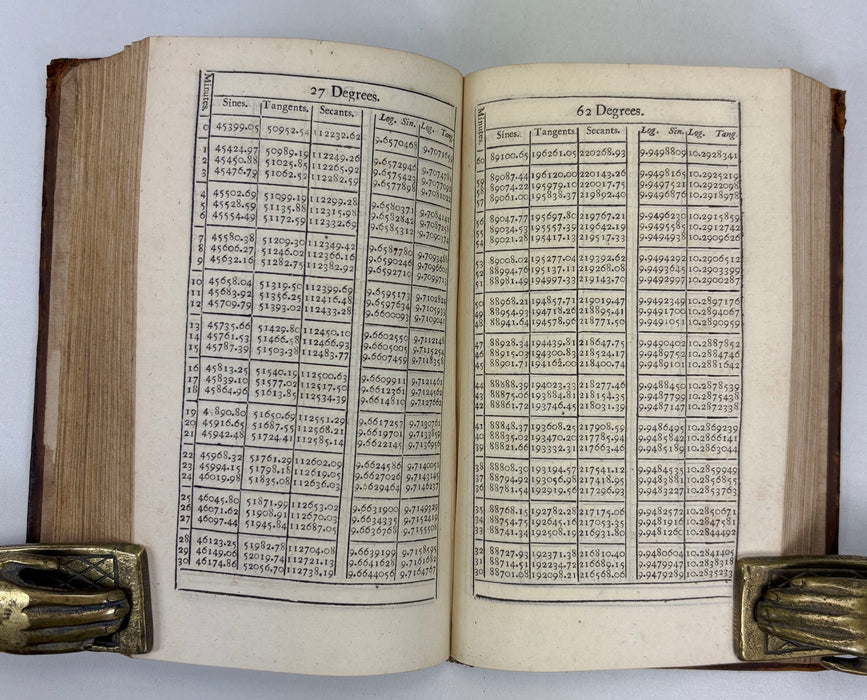 27 Degrees.
Minutes. Sines. Tangents. Secants. Log. Sin. Log. Tang.
0 45399.05 50952.54 112232.62 9.6570468 9.7071659
1 45424.97 50989.19 112249.26 9.6572946
2 45450.88 51025.85 112265.92 9.6575423
3 45476.79 51062.52 112282.59 9.6577898
4 45502.69 51099.19 112299.28 9.6580371
5 45528.59 51135.88 112315.98 9.6582842
6 45554.49 51172.59 112332.69 9.6585312
7 45580.38 51209.30 112349.42 9.6587780
8 45606.27 51246.02 112366.16 9.6590246
9 45632.16 51282.75 112382.92 9.6592710
10 45658.04 51319.50 112399.69 9.6595173
11 45683.92 51356.25 112416.48 9.6597634
12 45709.79 51393.02 112433.28 9.6600093
13 45735.66 51429.80 112450.10 9.6602550
14 45761.53 51466.58 112466.93 9.6605005
15 45787.39 51503.38 112483.77 9.6607459
16 45813.25 51540.19 112500.63 9.6609911
17 45839.10 51577.02 112517.50 9.6612361
18 45864.96 51613.85 112534.39 9.6614810
19 45890.80 51650.69 112551.29 9.6617257
20 45916.65 51687.55 112568.21 9.6619701
21 45942.48 51724.41 112585.14 9.6622145
22 45968.32 51761.29 112602.09 9.6624586
23 45994.15 51798.18 112619.05 9.6627026
24 46019.98 51835.08 112636.03 9.6629464
25 46045.80 51871.99 112653.02 9.6631900
26 46071.62 51908.91 112670.03 9.6634335
27 46097.44 51945.84 112687.05 9.6636768
28 46123.25 51982.78 112704.08 9.6639199
29 46149.06 52019.74 112721.13 9.6641628
30 46174.86 52056.70 112738.19 9.6644056 9.7164767
62 Degrees.
Minutes. Sines. Tangents Secants. Log. Sin. Log. Tang.
60 89100.65 196261.05 220268.93 9.9498809 10.2928341
59 89087.44 196120.00 220143.26 9.9498165 10.2925219
58 89074.22 195979.10 220017.75 9.9497521 10.2922098
57 89061.00 195838.37 219892.40 9.9496876 10.2918978
56 89047.77 195697.80 219767.21 9.9496230 10.2915859
55 89034.53 195557.39 219642.19 9.9495585 10.2912742
54 89021.28 195417.13 219517.33 9.9494938 10.2909626
53 89008.02 195277.04 219392.62 9.9494292 10.2906512
52 88994.76 195137.11 219268.08 9.9493645 10.2903399
51 88981.49 194997.33 219143.70 9.9492997 10.2900287
50 88968.21 194857.71 219019.47 9.9492349 10.2897176
49 88954.93 194718.26 218895.41 9.9491700 10.2894067
48 88941.64 194578.96 218771.50 9.9491051 10.2890959
47 88928.34 194439.81 218647.75 9.9490402 10.2887852
46 88915.03 194300.83 218524.17 9.9489752 10.2884746
45 88901.71 194162.00 218400.74 9.9489101 10.2881642
44 88888.39 194023.33 218277.46 9.9488450 10.2878539
43 88875.06 193884.81 218154.35 9.9487799 10.2875438
42 88861.72 193746.45 218031.39 9.9487147 10.2872338
41 88848.37 193608.25 217908.59 9.9486495 10.2869239
40 88835.02 193470.20 217785.94 9.9485842 10.2866141
39 88821.66 193332.31 217663.46 9.9485189 10.2863044
38 88808.30 193194.57 217541.12 9.9484535 10.2859949
37 88794.92 193056.98 217418.95 9.9483881 10.2856855
36 88781.54 192919.56 217296.93 9.9483227 10.2853763
35 88768.15 192782.28 217175.06 9.9482572 10.2850671
34 88754.75 192645.16 217053.35 9.9481916 10.2847581
33 88741.34 192508.19 216931.80 9.9481260 10.2844492
32 88727.93 192371.38 216810.40 9.9480604 10.2841405
31 88714.51 192234.72 216689.15 9.9479947 10.2838318
30 88701.08 192098.21 216568.06 9.9479289 10.2835233